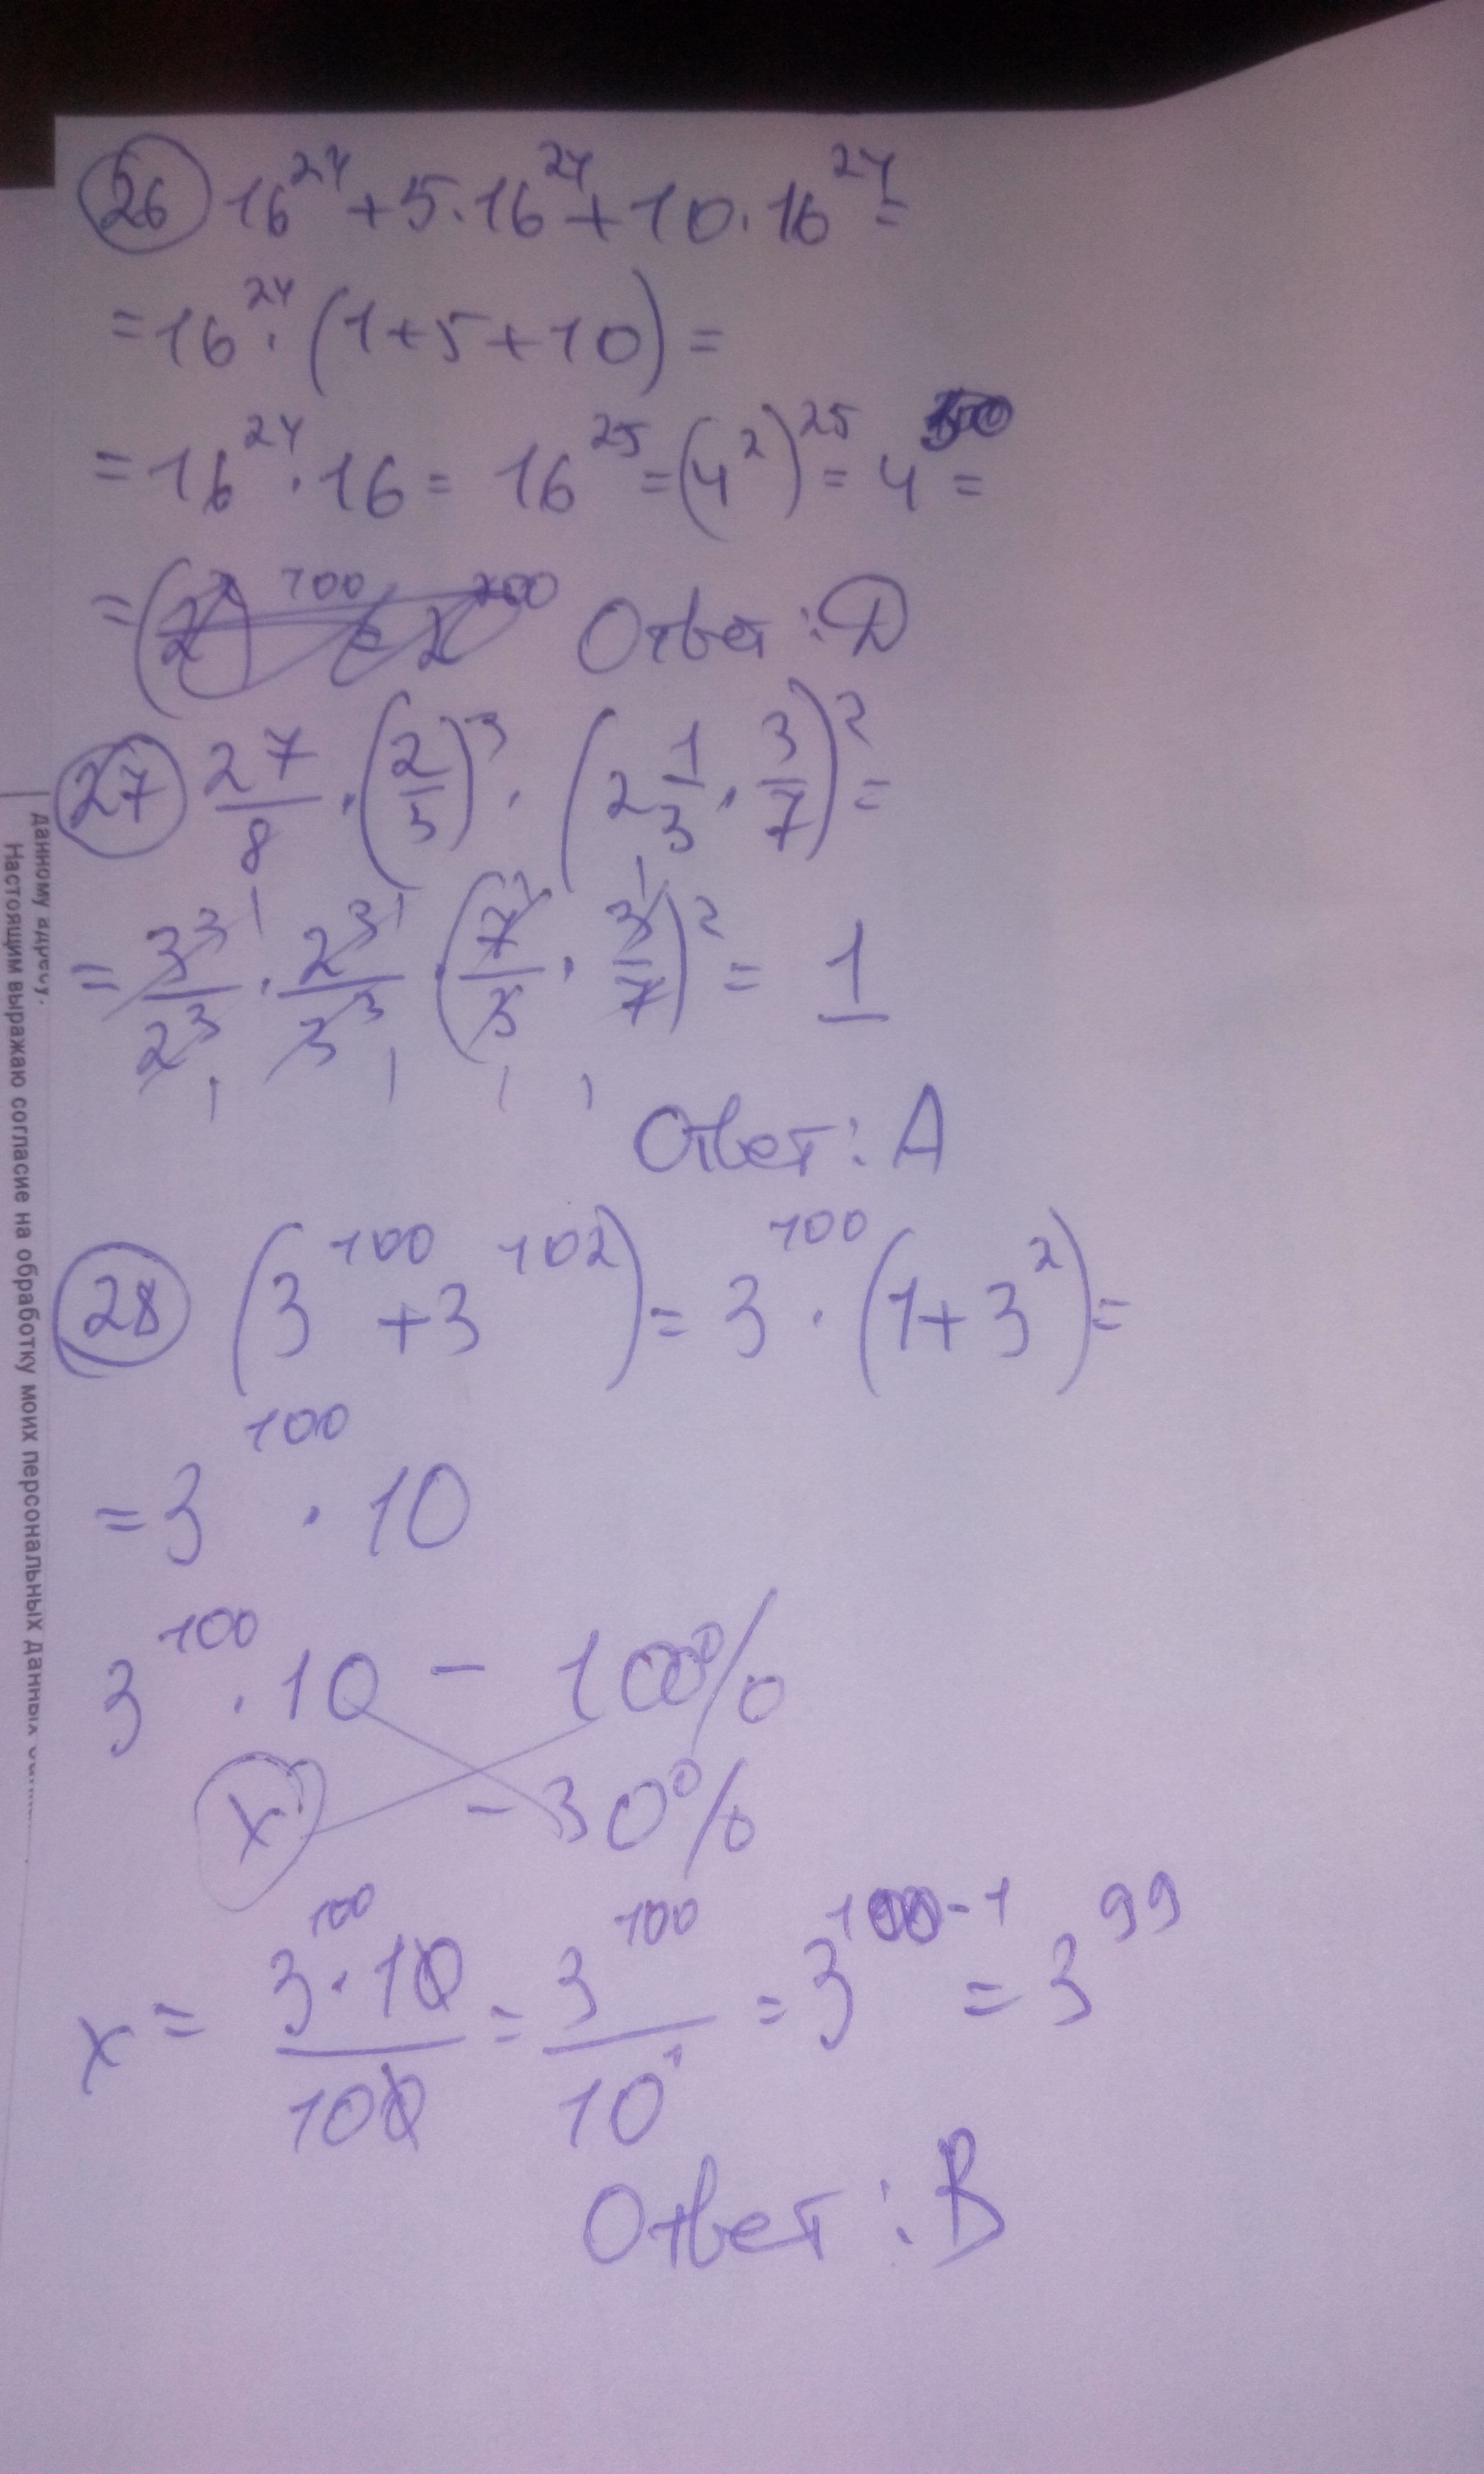 26 16^24 + 5·16^24 + 10·16^24 =
= 16^24 · (1+5+10) =
= 16^24 · 16 = 16^25 = (4^2)^25 = 4 =
= Ответ: D
27 27/8 · (2/3)^3 · (2 1/3 · 3/7)^2 =
= 3^3/2^3 · 2^3/3^3 · (7/3 · 3/7)^2 = 1
Ответ: A
28 (3^100 + 3^102) = 3^100 · (1+3^2) =
= 3^100 · 10
3^100 · 10 – 100%
x – 30%
x = 3^100·10/100 = 3^100/10^1 = 3^100-1 = 3^99
Ответ: B
данному адресу.
Настоящим выражаю согласие на обработку моих персональных данных